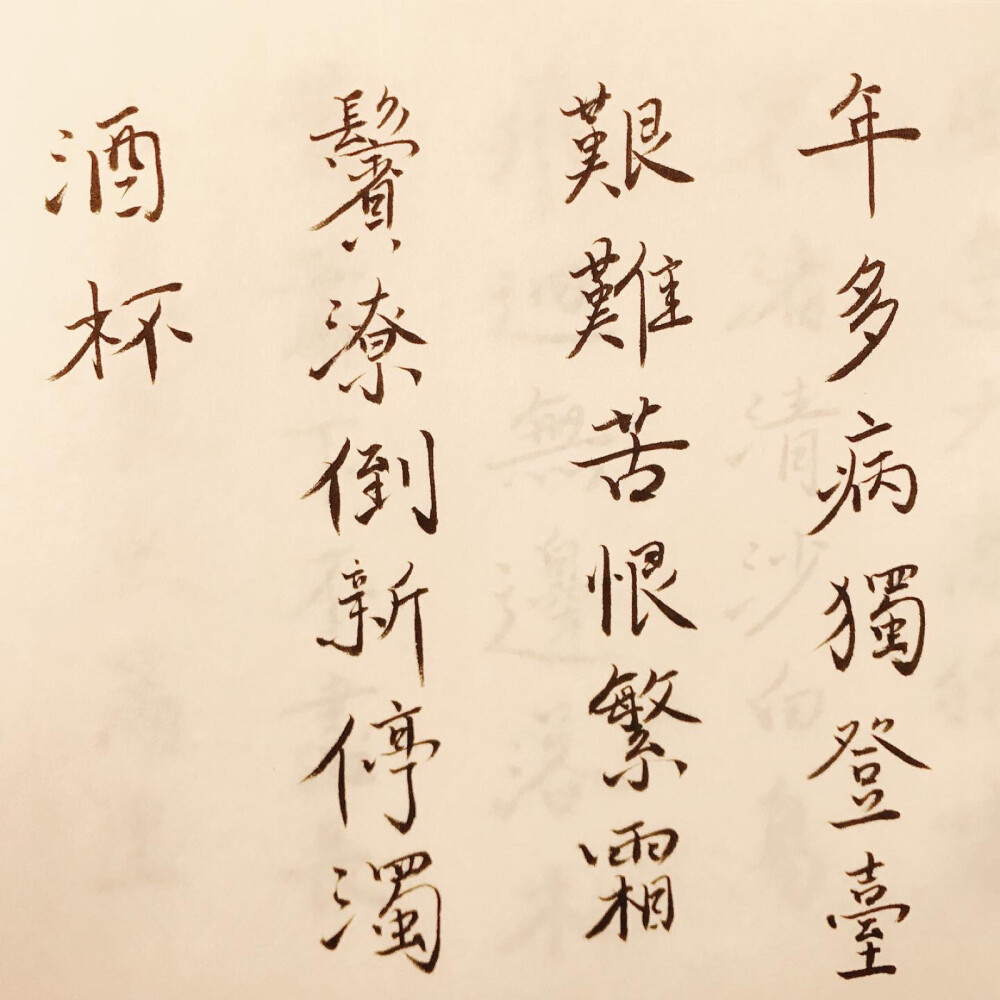 年多病獨登臺
艱難苦恨繁霜
鬢潦倒新停濁
酒杯